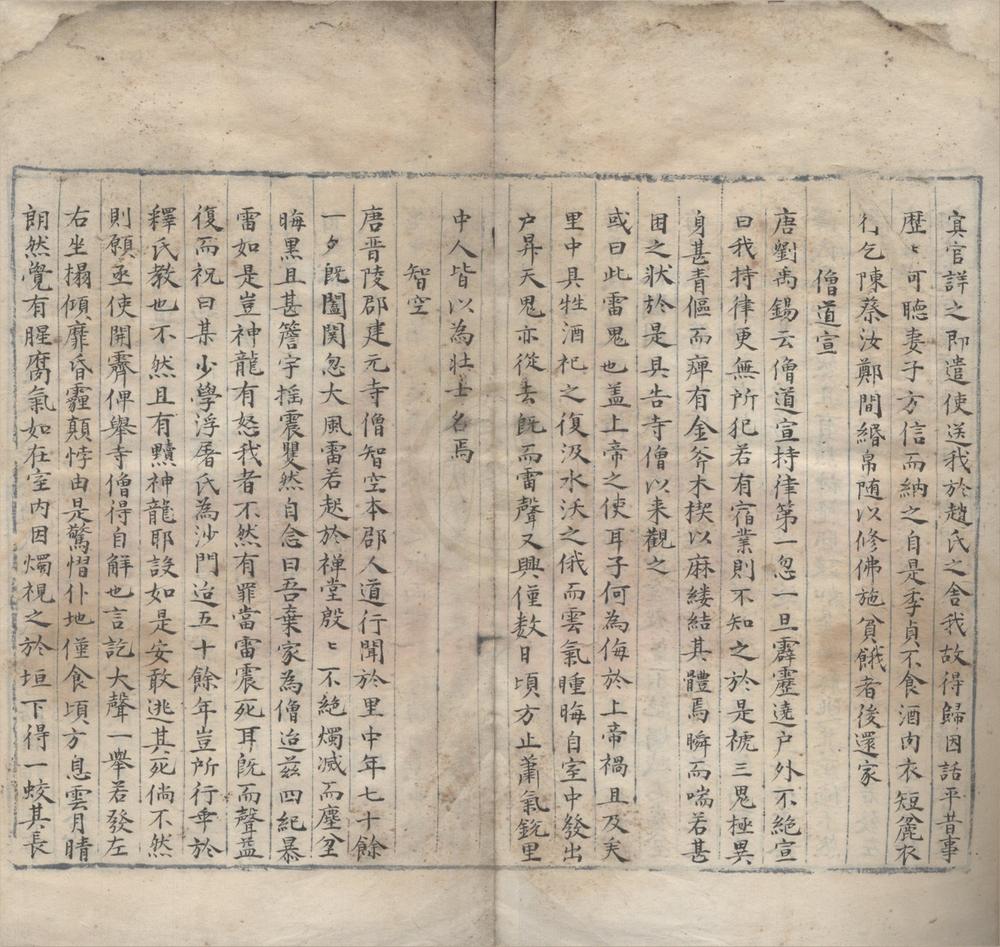 寘官詳之即遣使送我於趙氏之舍我故得歸因話平昔事
歷〻可聽妻子方信而納之自是季貞不食酒肉衣短麄衣
行乞陳蔡汝鄭間緡帛随以修佛施貧餓者後還家
僧道宣
唐劉禹錫云僧道宣持律第一忽一旦霹靂遶户外不絶宣
曰我持律更無所犯若有宿業則不知之於是褫三
身甚青傴而痺有金斧木楔以麻縷結其體焉瞬而喘若甚
困之狀於是具告寺僧以来觀之
或曰此雷鬼也盖上帝之使耳子何為侮於上帝禍且及矣
里中具牲酒祀之復汲水沃之俄而雲氣曈晦自室中發出
户昇天鬼亦從去既而雷聲又興僅数日頃方止蕭氣銳里
中人皆以為壯士名焉
智空
唐晋陵郡建元寺僧智空本郡人道行聞於里中年七十餘
一夕既闔関忽大風雷若起於禅堂殷〻不絶燭滅而塵坌
晦黑且甚簷宇摇震矍然自念曰吾棄家為僧迨兹四紀暴
雷如是豈神龍有怒我者不然有罪當雷震死耳既而聲益
復而祝曰某少學浮屠氏為沙門迨五十餘年豈所行乖於
釋氏教也不然且有黷神龍耶設如是安敢逃其死倘不然
則願亟使開霽俾舉寺僧得自解也言訖大聲一舉若發左
右坐榻傾靡昏霾顛悖由是驚慴仆地僅食頃方息雲月晴
朗然覺有腥腐氣如在室内因燭視之於垣下得一蛟其長